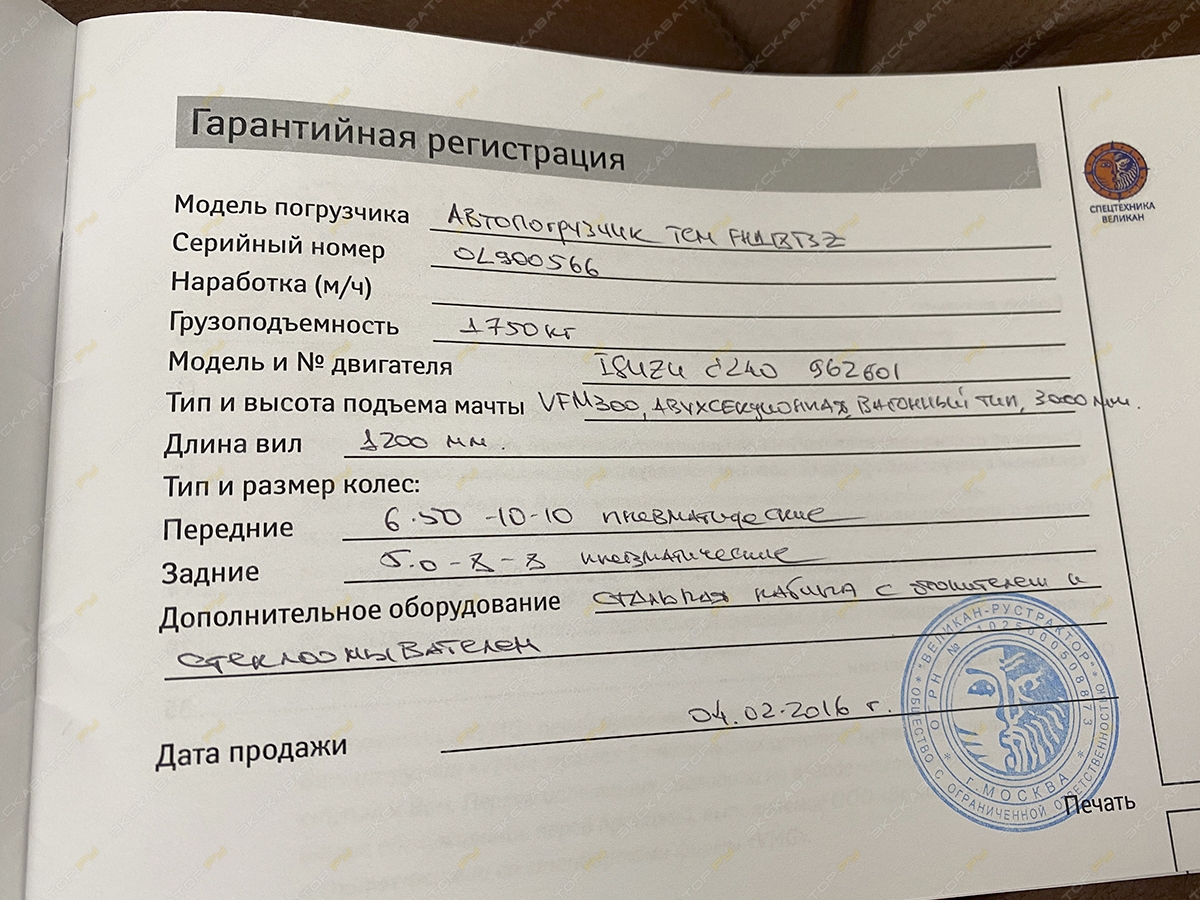 Гарантийная регистрация
СПЕЦТЕХНИКА
ВЕЛИКАН
Модель погрузчика Автопогрузчик TCM FHD18T3Z
Серийный номер 0L900566
Наработка (м/ч)
Грузоподъемность 1750 кг
Модель и № двигателя ISUZU C240 962601
Тип и высота подъема мачты VFM300, двухсекционная, вагонный тип, 3000 мм.
Длина вил 1200 мм.
Тип и размер колес:
Передние 6.50-10-10 пневматические
Задние 5.0-8-8 пневматические
Дополнительное оборудование стальная кабина с отопителем и
стеклоомывателем
Дата продажи 04.02.2016 г.
Печать
"ВЕЛИКАН-РУСТРАКТОР"
ОБЩЕСТВО С ОГРАНИЧЕННОЙ ОТВЕТСТВЕННОСТЬЮ
ОГРН № 1025000508873
г. МОСКВА